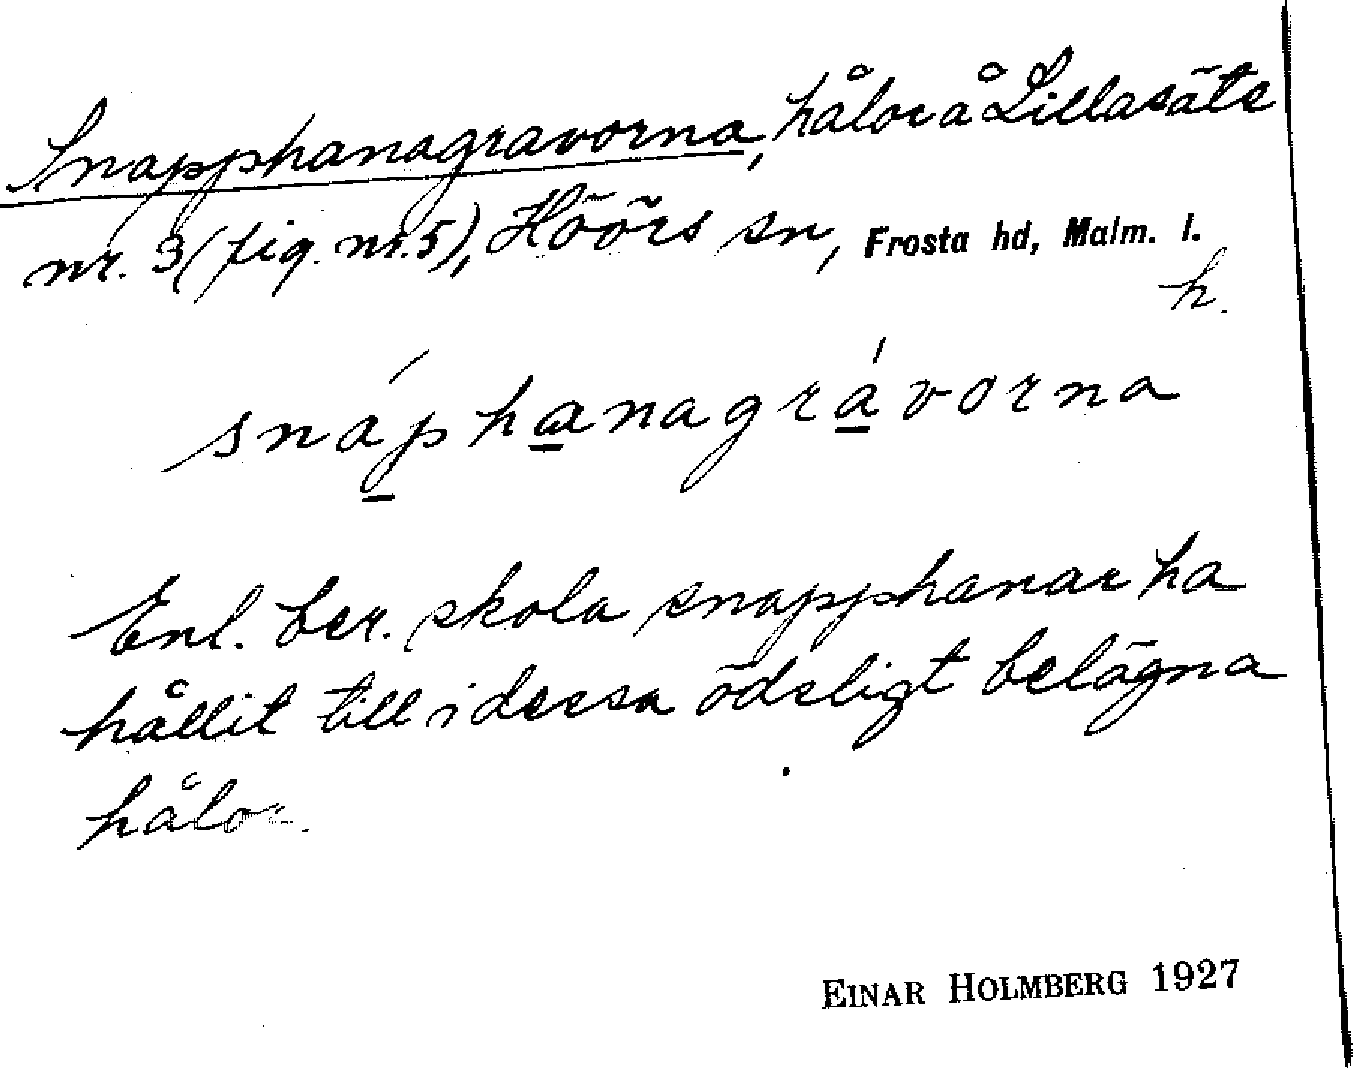 Snapphanagravorna, hålor å Lillasäte
nr. 3 (fig. nr. 5), Höörs sn, Frosta hd, Malm. l.
h.
snáp̲ha̲nagrá̲vorna
Enl. ber. skola snapphanar ha
hållit till i dessa ödsligt belägna
hålor.
EINAR HOLMBERG 1927